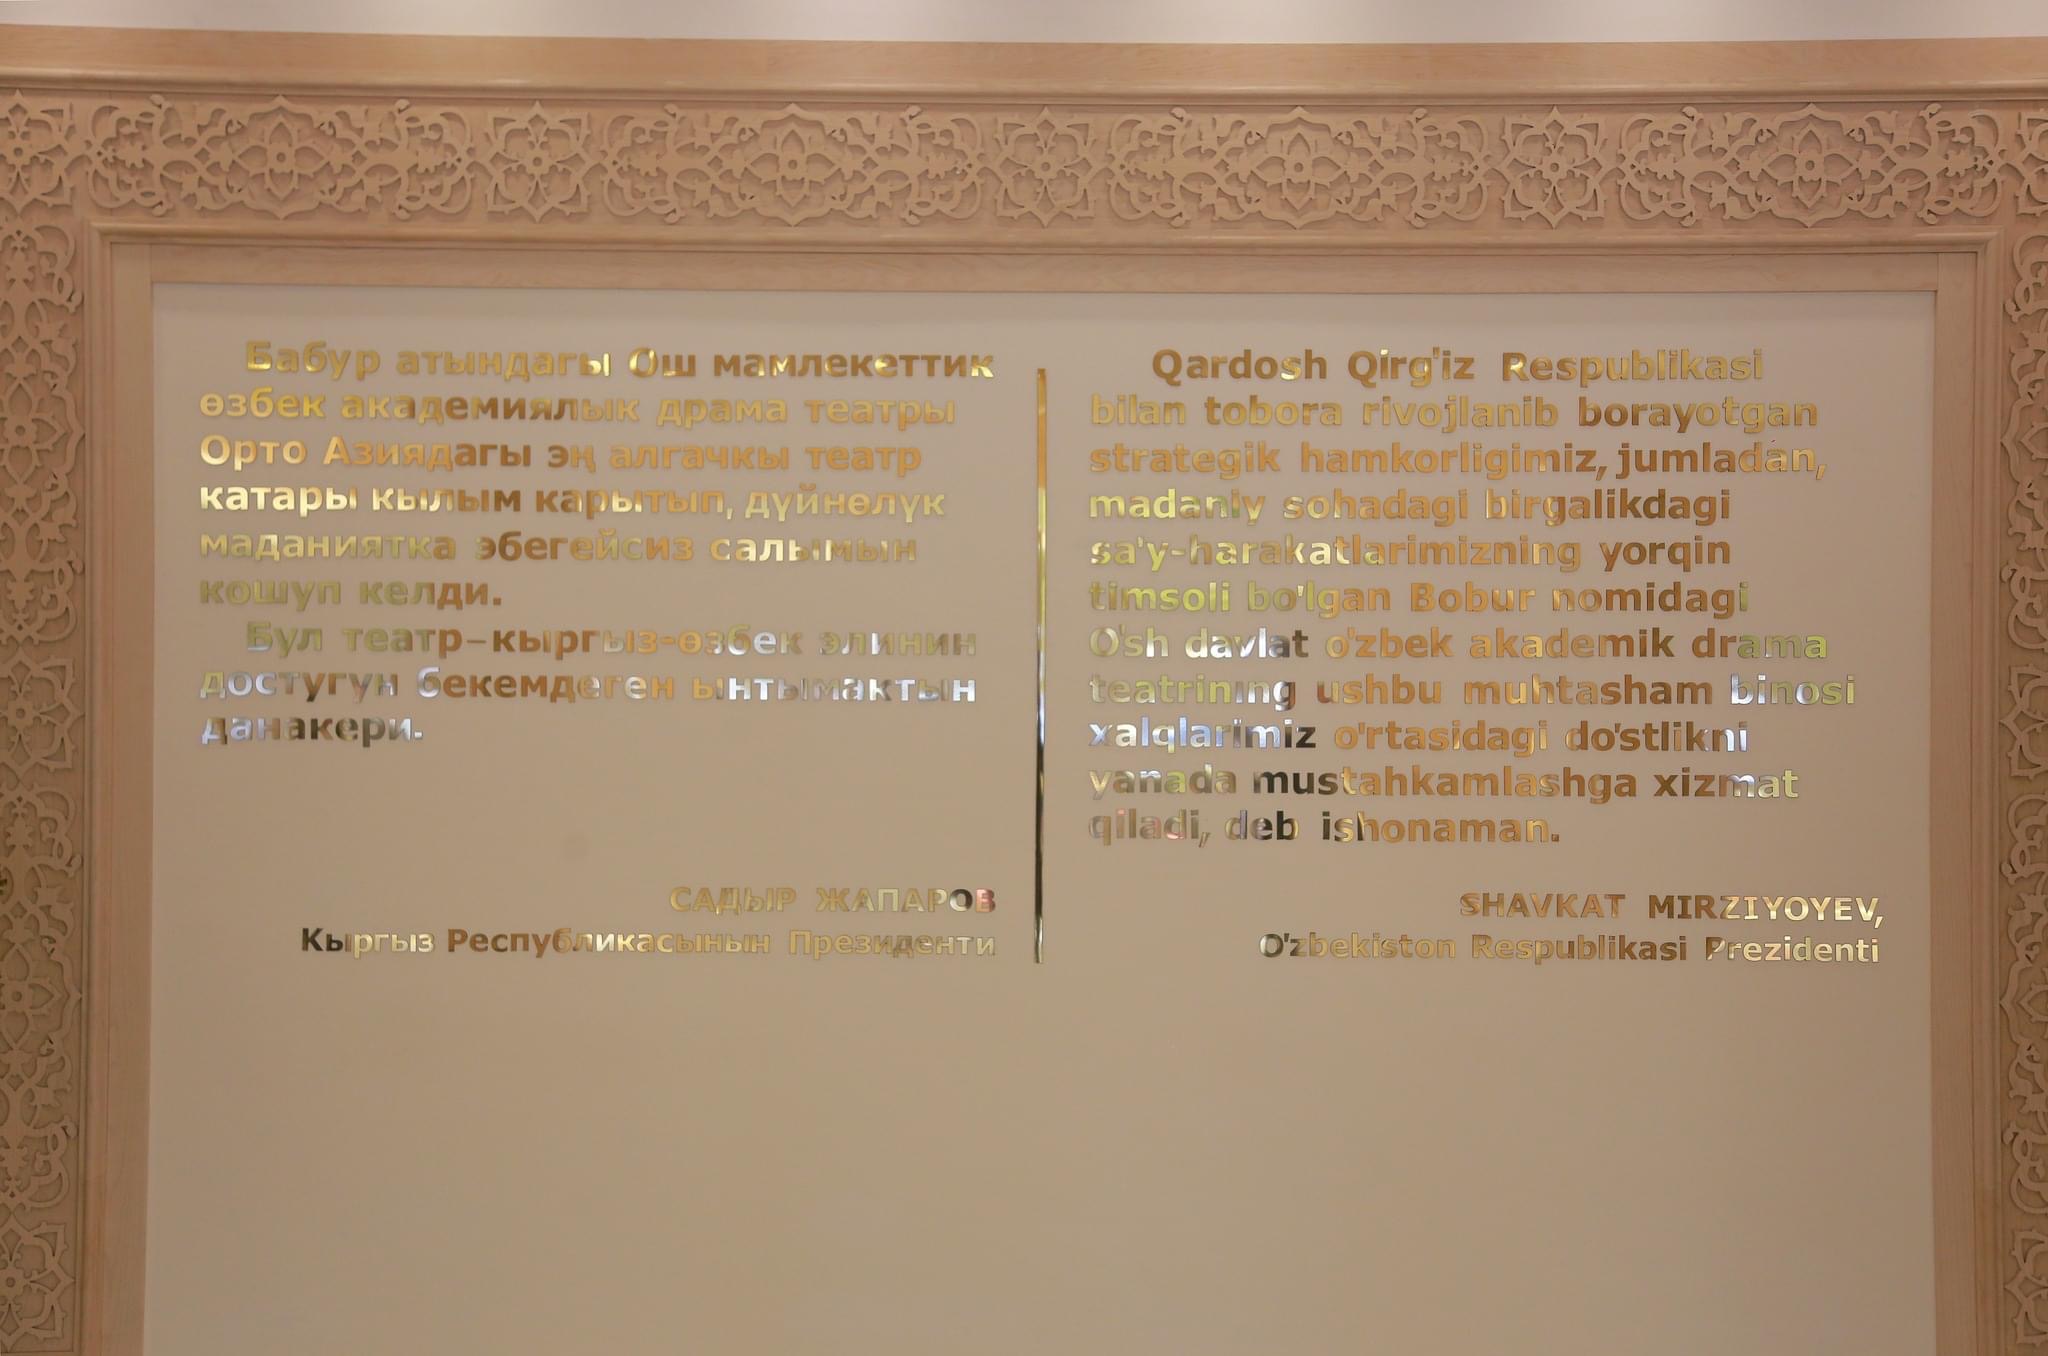 Бабур атындагы Ош мамлекеттик
өзбек академиялык драма театры
Орто Азиядагы эң алгачкы театр
катары кылым карытып, дүйнөлүк
маданиятка эбегейсиз салымын
кошуп келди.
Бул театр-кыргыз-өзбек элинин
достугун бекемдеген ынтымактын
данакери.
САДЫР ЖАПАРОВ
Кыргыз Республикасынын Президенти
Qardosh Qirg'iz Respublikasi
bilan tobora rivojlanib borayotgan
strategik hamkorligimiz, jumladan,
madaniy sohadagi birgalikdagi
sa'y-harakatlarimizning yorqin
timsoli bo'lgan Bobur nomidagi
O'sh davlat o'zbek akademik drama
teatrining ushbu muhtasham binosi
xalqlarimiz o'rtasidagi do'stlikni
yanada mustahkamlashga xizmat
qiladi, deb ishonaman.
SHAVKAT MIRZIYOYEV,
O'zbekiston Respublikasi Prezidenti